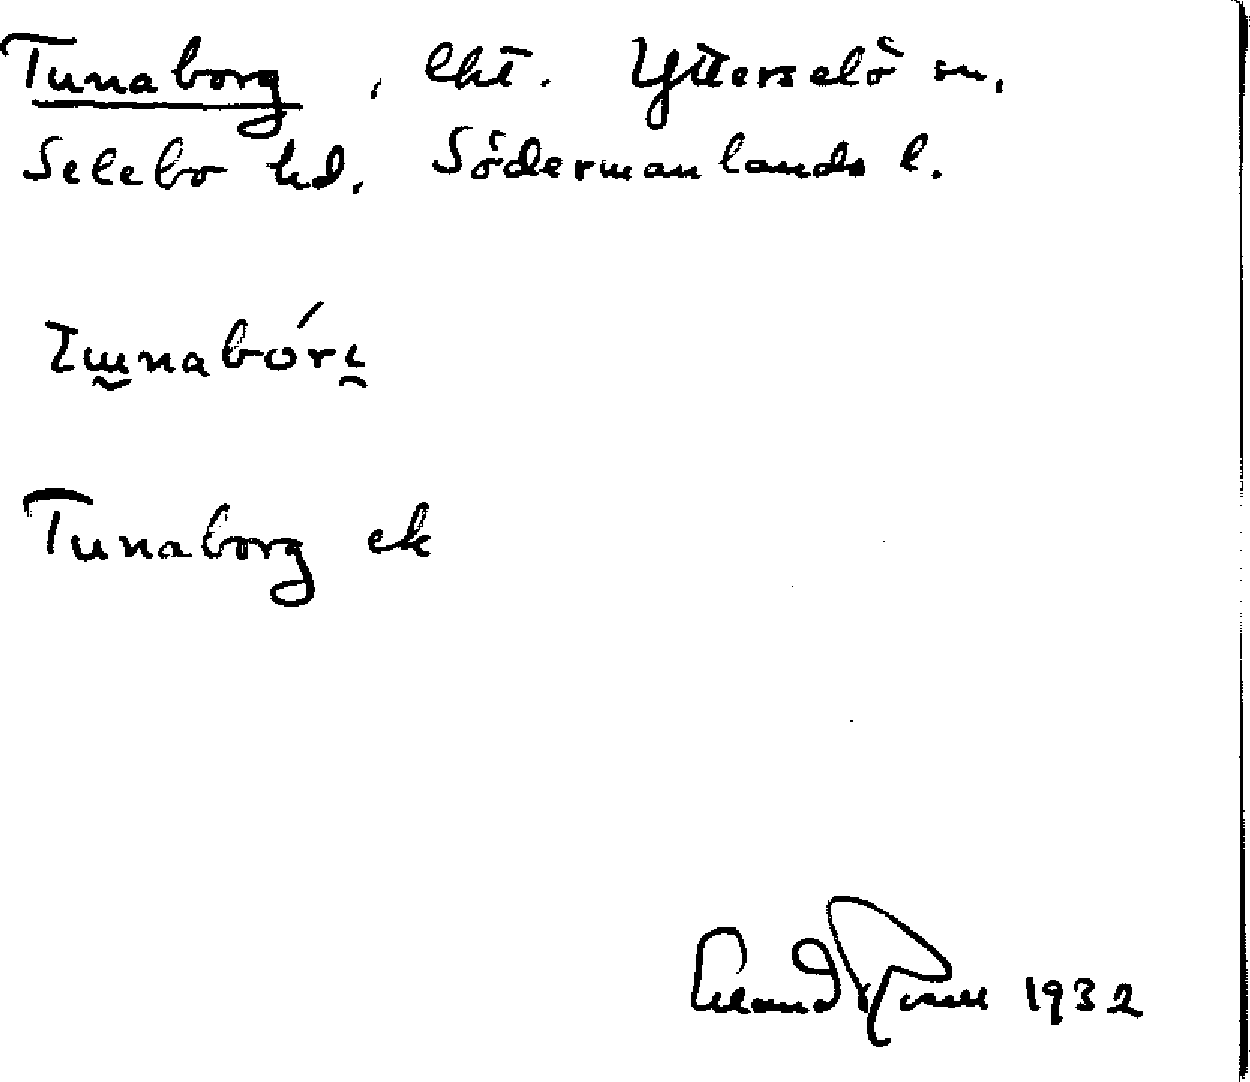 Tunaborg, lht. Ytterselö sn,
Selebo hd. Södermanlands l.
Tunaborg ek
1932